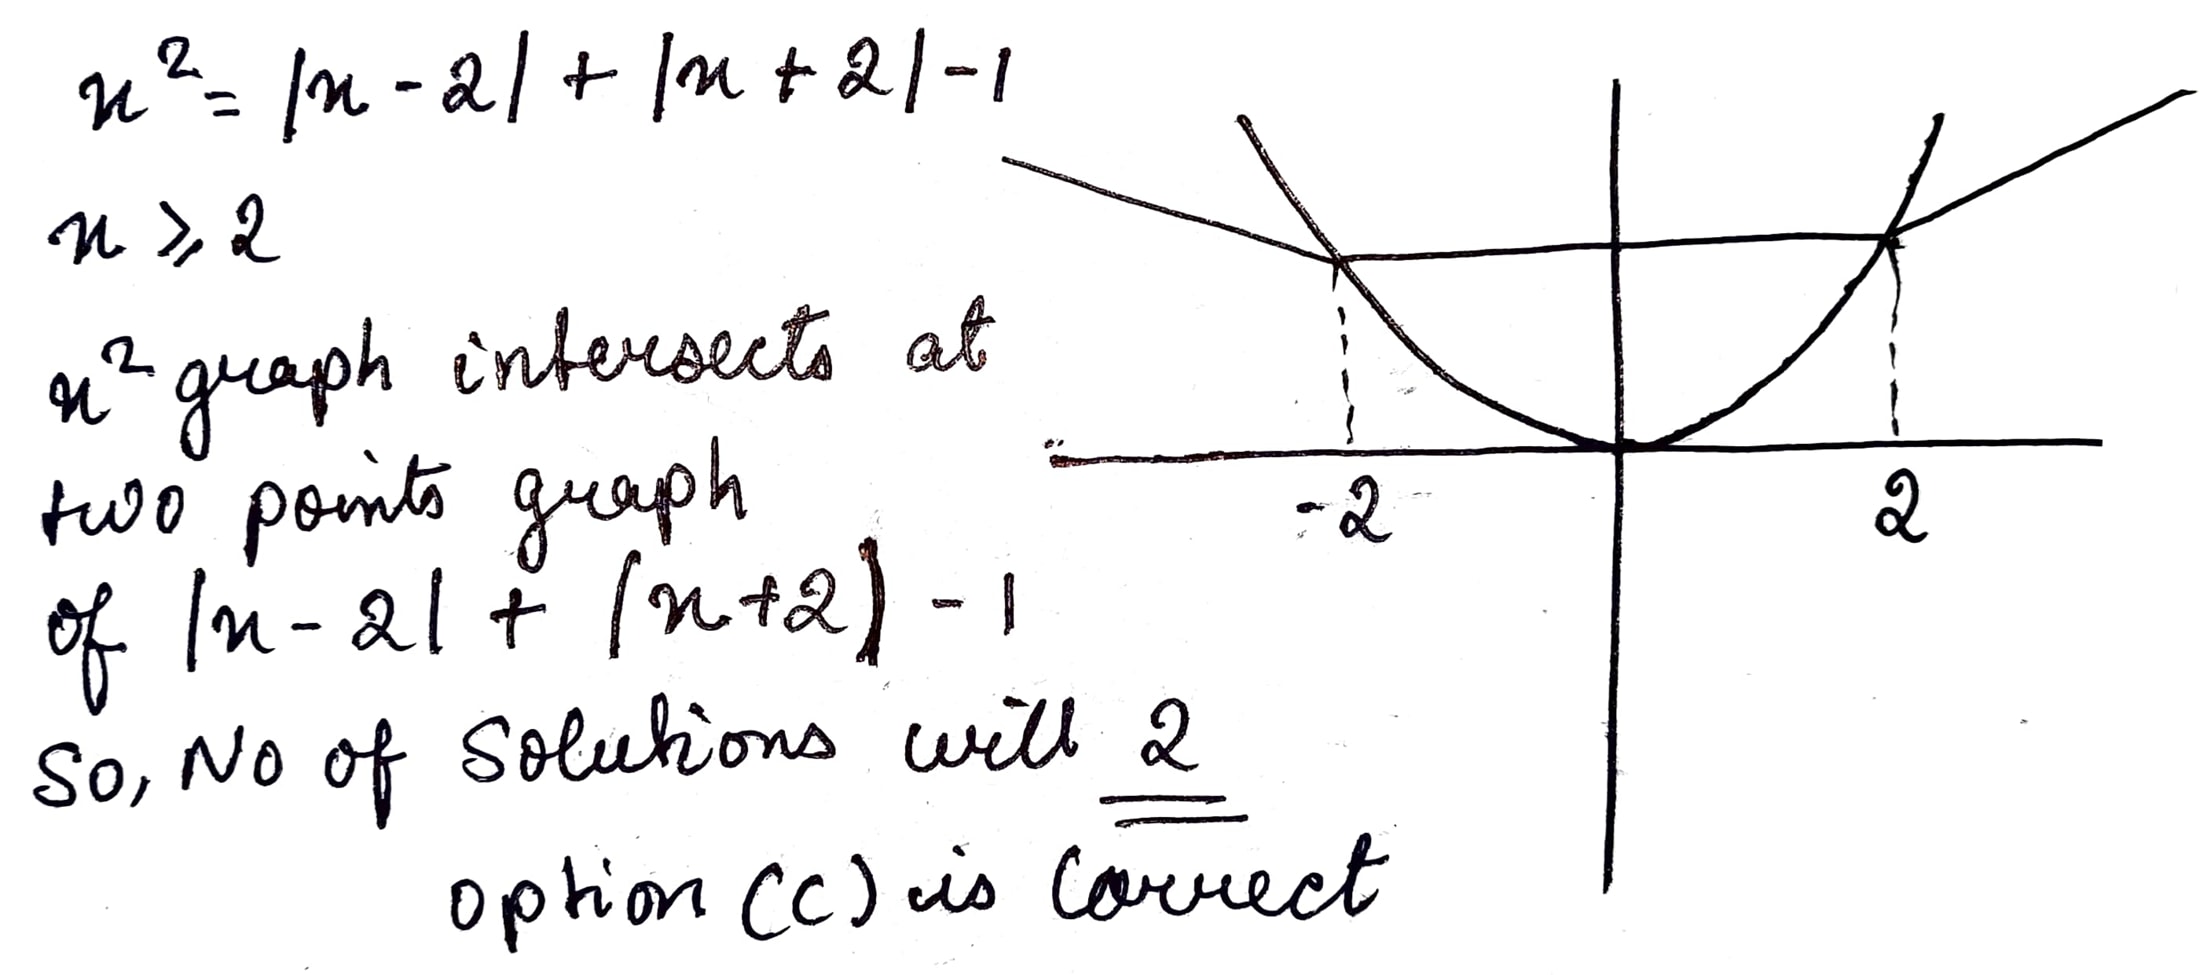 x² = |x - 2| + |x + 2| - 1
x ≥ 2
x² graph intersects at
two points graph
of |x - 2| + |x + 2) - 1
So, No of Solutions will 2
option (C) is Correct
-2
2